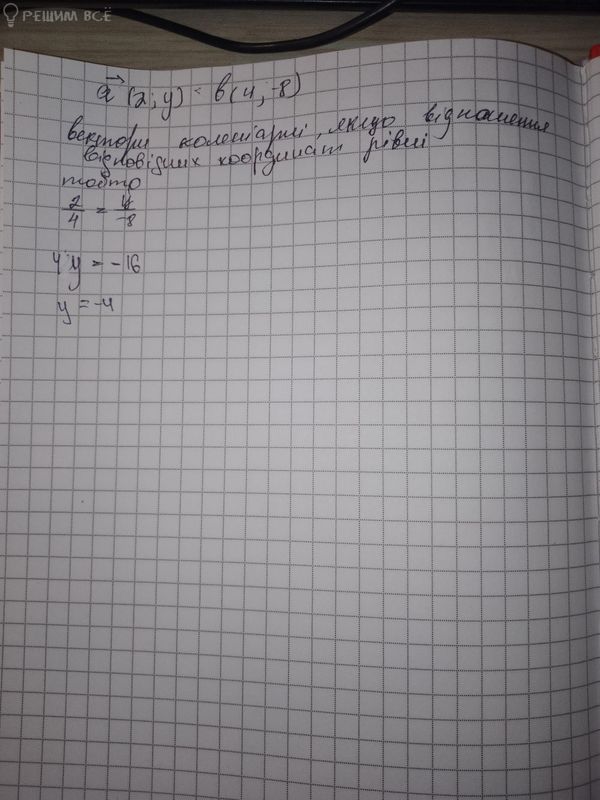 РЕШИМ ВСЁ
a⃗ (2; y) = b(4; -8)
вектори коленіарні, якщо відношення
відповідних координат рівні
тобто
2/4 = y/-8
4·y = -16
y = -4